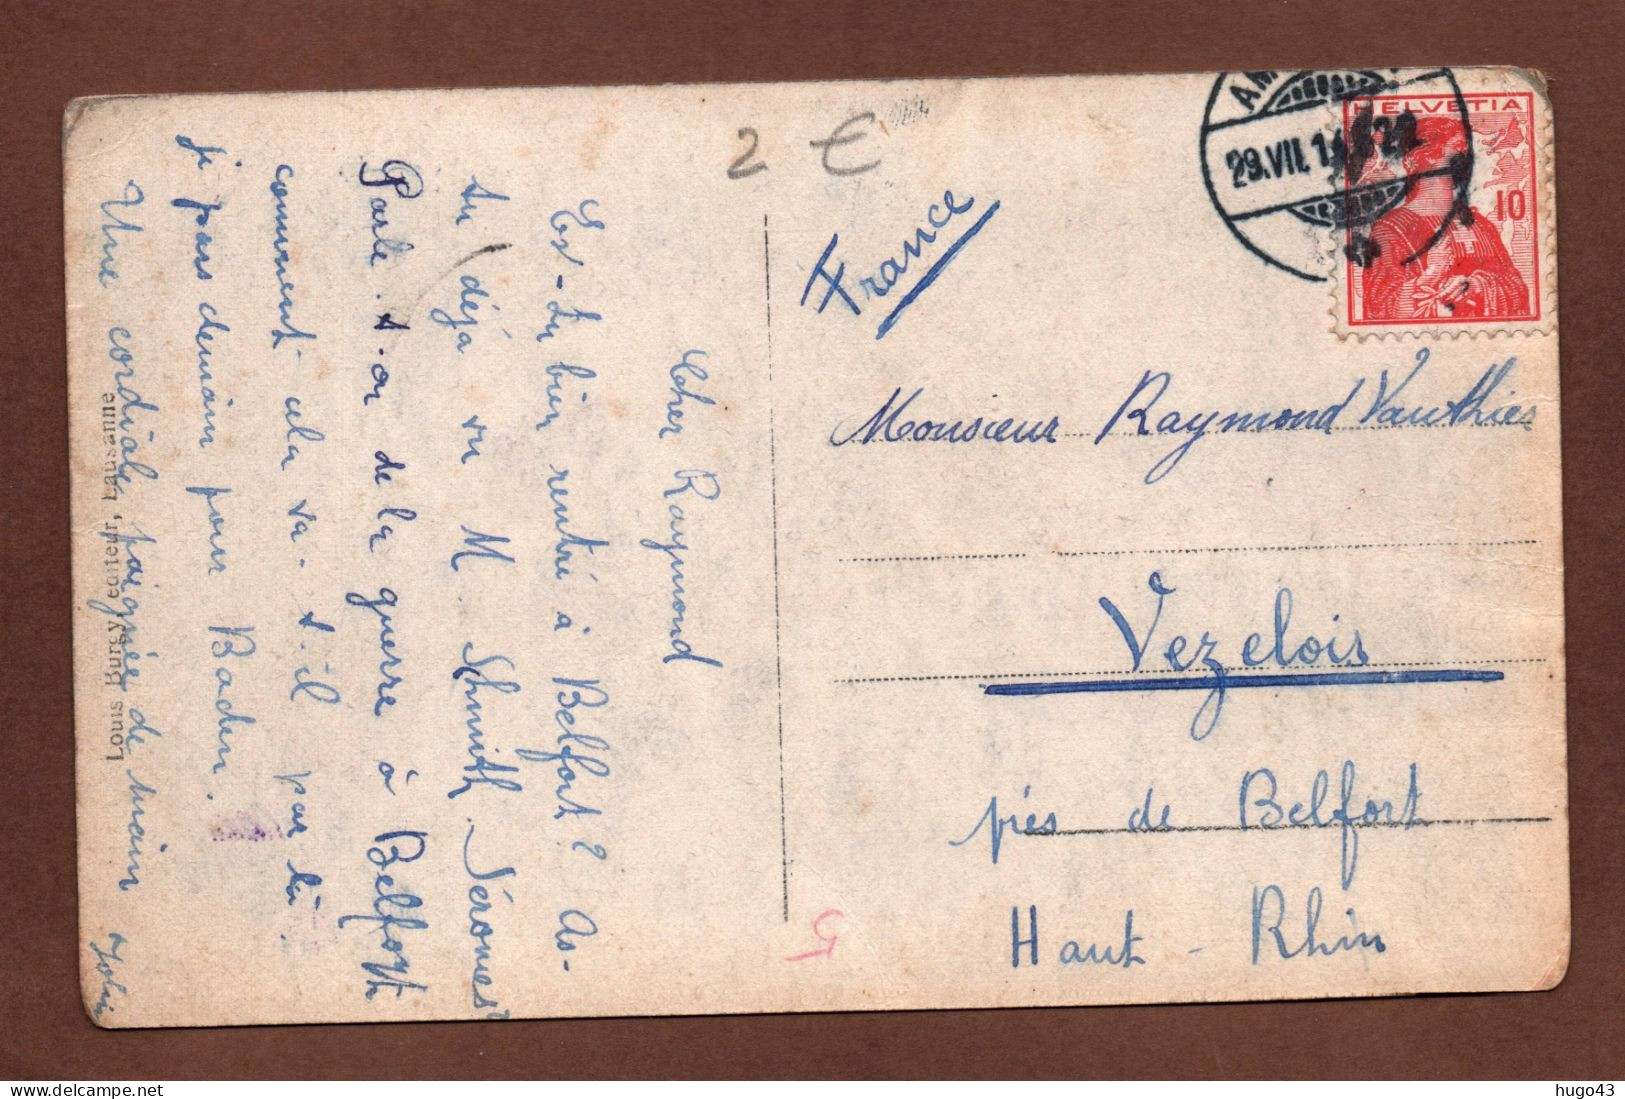 2 €
AM
29.VII.1
HELVETIA
10
France
Monsieur Raymond Vauthier
Vezelois
près de Belfort
Haut-Rhin
5
Cher Raymond
Es-tu bien rentré à Belfort? As-
tu déjà vu M. Schmith. Séromes?
Parle-t-on de la guerre à Belfort
comment cela va-t-il par là.
Je pars demain pour Baden.
Une cordiale poignée de main
Louis Burgy, éditeur, Lausanne
hugo43